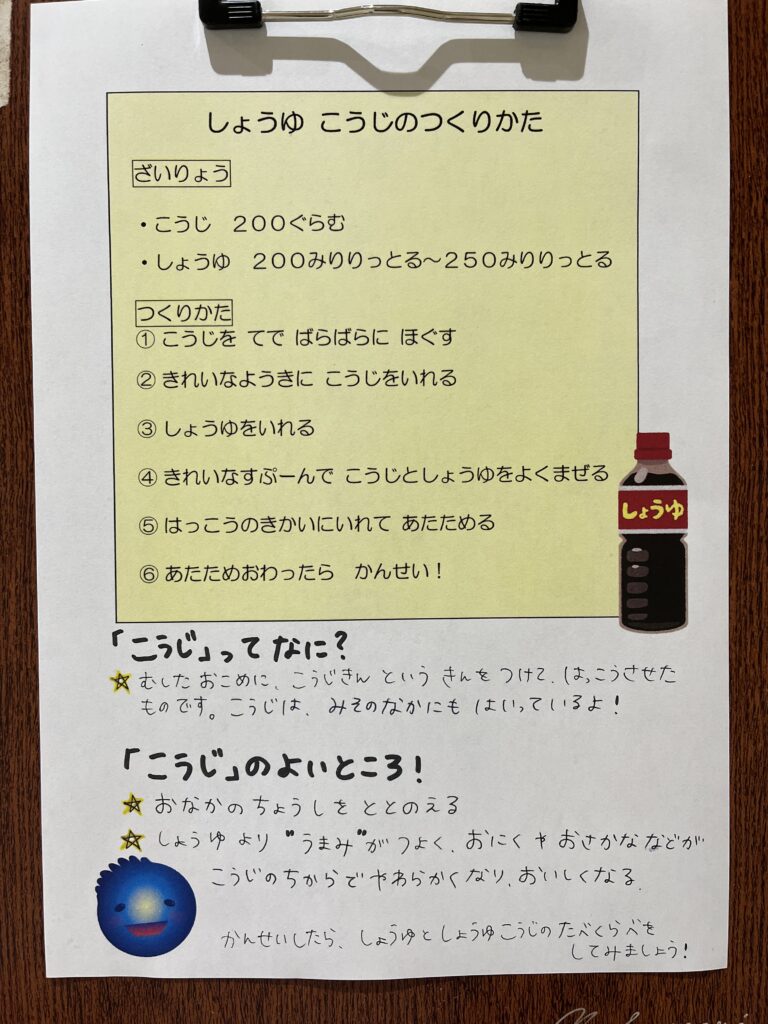 しょうゆ こうじのつくりかた
ざいりょう
・こうじ　２００ぐらむ
・しょうゆ　２００みりりっとる～２５０みりりっとる
つくりかた
① こうじを てで ばらばらに ほぐす
② きれいなようきに こうじをいれる
③ しょうゆをいれる
④ きれいなすぷーんで こうじとしょうゆをよくまぜる
⑤ はっこうのきかいにいれて あたためる
⑥ あたためおわったら　かんせい！
しょうゆ
「こうじ」って なに？
むした おこめに、こうじきん という きんを つけて、はっこうさせた
ものです。こうじは、みそのなかにも はいっているよ！
「こうじ」のよいところ！
おなかの ちょうしを ととのえる
しょうゆ より "うまみ"が つよく、おにく や おさかな などが
こうじのちからで やわらかくなり、おいしくなる。
かんせいしたら、しょうゆとしょうゆこうじのたべくらべを
してみましょう！